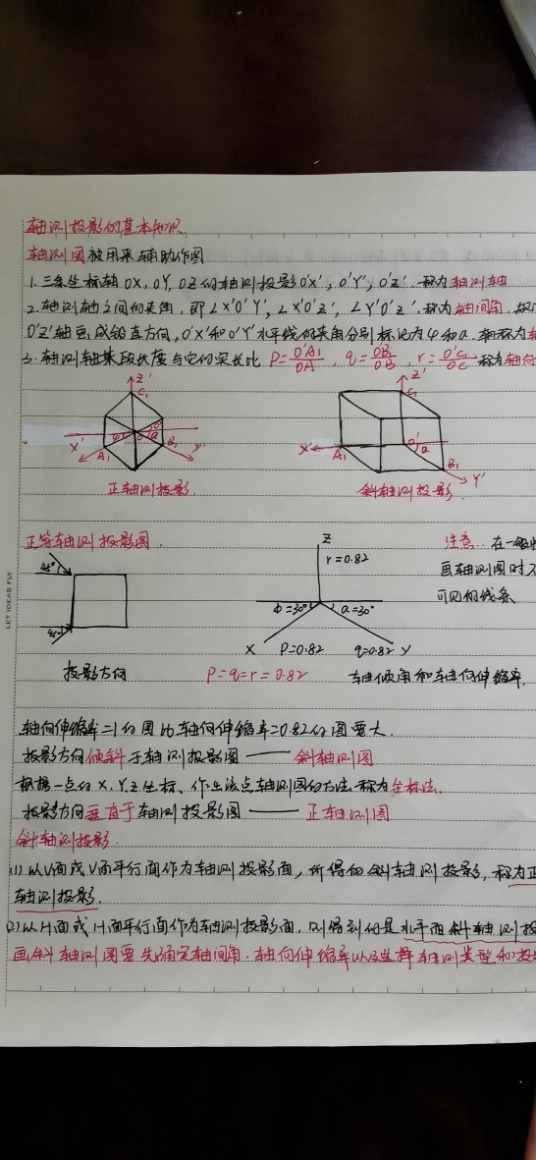 轴测投影的基本知识
轴测图被用来辅助作图
1.三条坐标轴OX,OY,OZ的轴测投影O'X',O'Y',O'Z'.称为轴测轴
2.轴测轴之间的夹角,即∠X'O'Y',∠X'O'Z',∠Y'O'Z'.称为轴间角.
O'Z'轴画成铅直方向,O'X'和O'Y'水平线的夹角分别标记为φ和α.轴称为
3.轴测轴某段长度与它的实长比 P=O'A1/OA, q=O'B1/OB, r=O'C1/OC 称为轴向
Z' C1 X' A1 φ α B1 Y'
Z' C1 X' A1 O' α B1 Y'
正轴测投影.
斜轴测投影.
正等轴测投影图.
注意:在一般
画轴测图时不
可见的线条
45°
45°
Z
r=0.82
φ=30° α=30°
X P=0.82 q=0.82 Y
投影方向
P=q=r=0.82
轴倾角和轴向伸缩率.
轴向伸缩率=1的图比轴向伸缩率=0.82的图要大.
投影方向倾斜于轴测投影图——斜轴测图
根据一点的X,Y,Z坐标、作出该点轴测图的方法.称为坐标法.
投影方向垂直于轴测投影图——正轴测图
斜轴测投影.
(1)以V面或V面平行面作为轴测投影面,所得的斜轴测投影,称为正
轴测投影.
(2)以H面或H面平行面作为轴测投影面.则得到的是水平面斜轴测投
画斜轴测图要先确定轴间角.轴向伸缩率以及选择轴测类型和投
LET IDEAS FLY